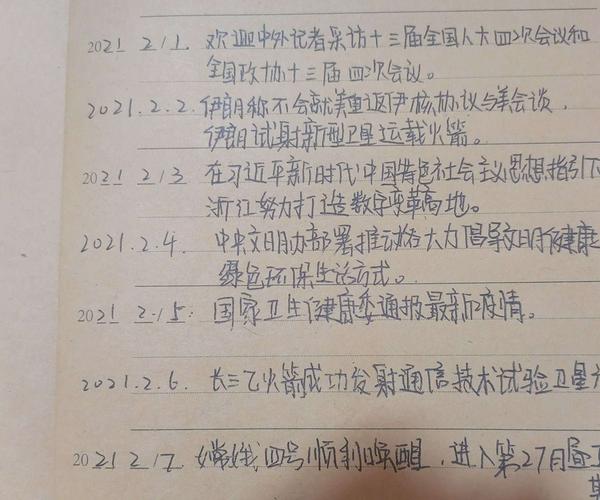 2021 2/1. 欢迎中外记者采访十三届全国人大四次会议和
全国政协十三届四次会议。
2021.2.2. 伊朗称不会就美重返伊核协议与美会谈,
伊朗试射新型卫星运载火箭。
2021 2/3 在习近平新时代中国特色社会主义思想指引下
浙江努力打造数字变革高地。
2021.2.4. 中央文明办部署推动各大力倡导文明健康
绿色环保生活方式。
2021 2/5. 国家卫生健康委通报最新疫情。
2021.2.6. 长三乙火箭成功发射通信技术试验卫星
2021 2/7. 嫦娥四号顺利唤醒,进入第27月昼工